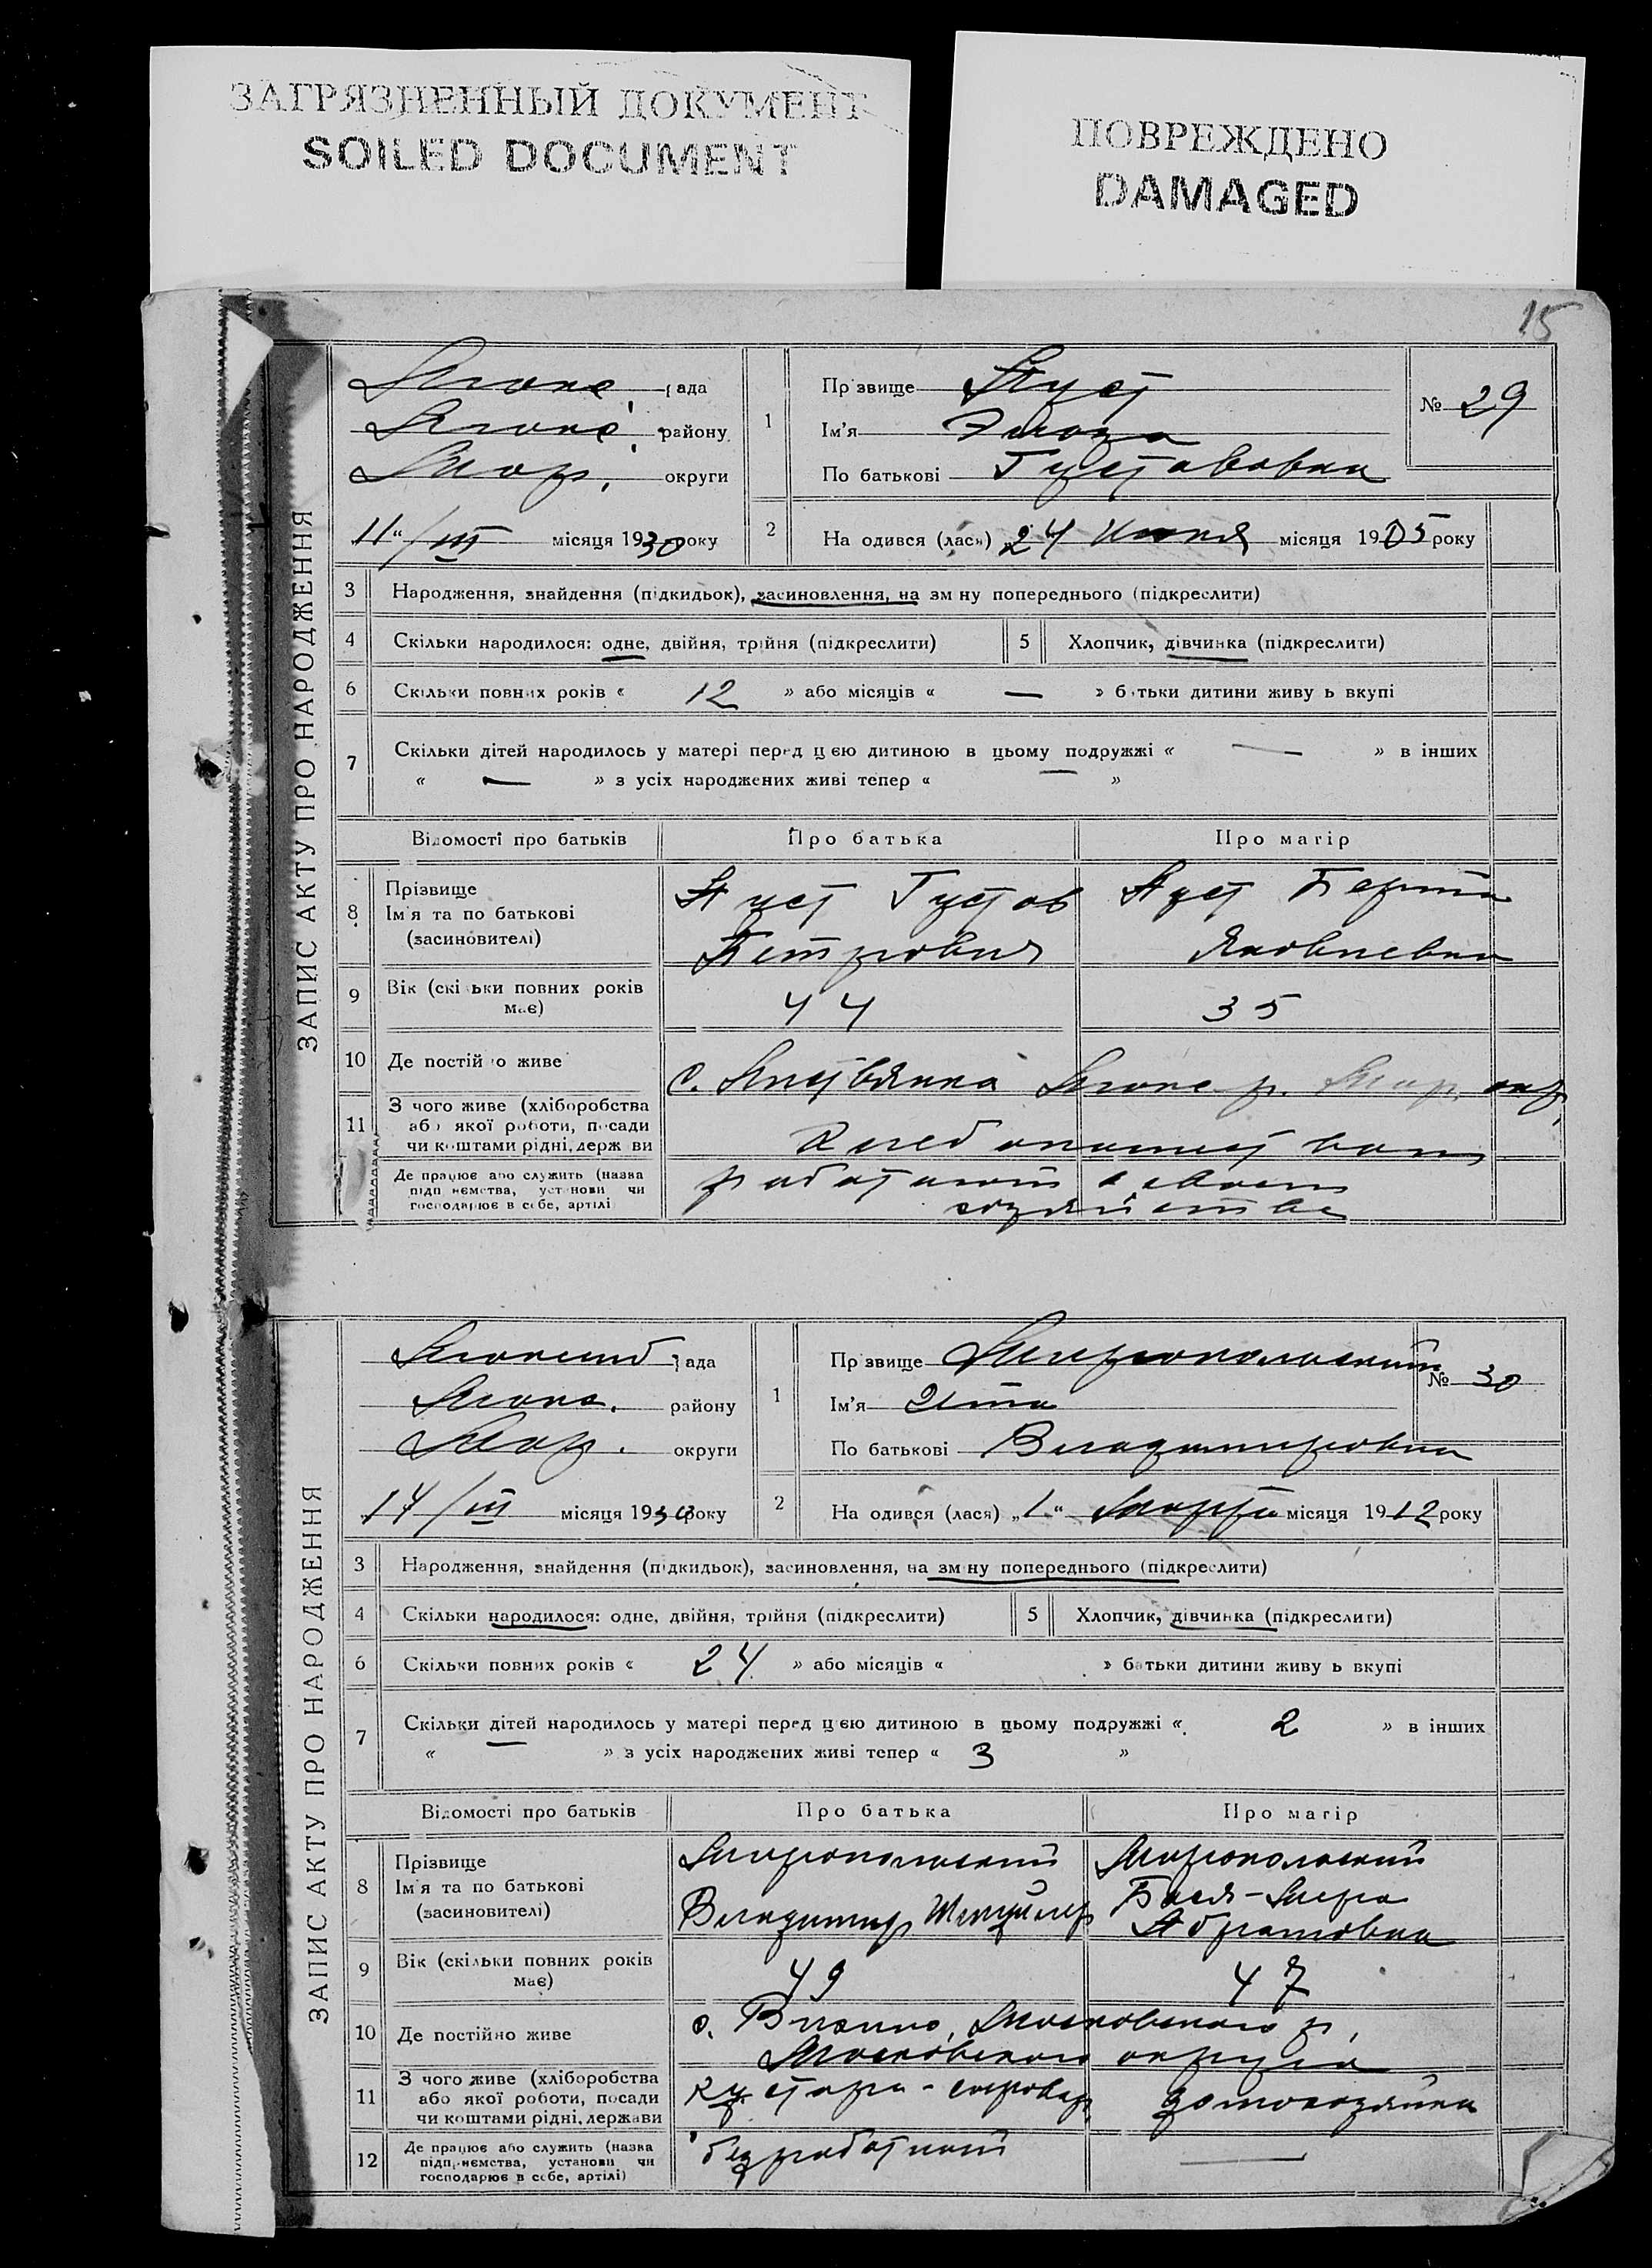 ЗАГРЯЗНЕННЫЙ ДОКУМЕНТ
SOILED DOCUMENT
ПОВРЕЖДЕНО
DAMAGED
15
ЗАПИС АКТУ ПРО НАРОДЖЕННЯ
рада
району
округи
11"/III місяця 1930 року
1
Прізвище
Ім'я
По батькові Густавовна
№ 29
2 На одився (лась) 24 місяця 1905 року
3 Народження, знайдення (підкидьок), засиновлення, на зм ну попереднього (підкреслити)
4 Скільки народилося: одне, двійня, трійня (підкреслити) 5 Хлопчик, дівчинка (підкреслити)
6 Скільки повних років « 12 » або місяців « — » батьки дитини живу ь вкупі
7 Скільки дітей народилось у матері перед цією дитиною в цьому подружжі « — » в інших
« — » з усіх народжених живі тепер « — »
Відомості про батьків Про батька Про матір
8 Прізвище
Ім'я та по батькові
(засиновителі)
Густав
Петрович
Берта
Яковлевна
9 Вік (скільки повних років
має)
44 35
10 Де постійно живе с.
11 З чого живе (хліборобства
або якої роботи, посади
чи коштами рідні, держ ви
Де працює або служить (назва
підп иємства, установи чи
господарює в себе, артілі
работают в своем
хозяйстве
ЗАПИС АКТУ ПРО НАРОДЖЕННЯ
рада
району
округи
14/III місяця 1930 року
1
Прізвище Миропольский
Ім'я Ита
По батькові Владимировна
№ 30
2 На одився (лася) „1" Марта місяця 1912 року
3 Народження, знайдення (підкидьок), засиновлення, на зм ну попереднього (підкреслити)
4 Скільки народилося: одне, двійня, трійня (підкреслити) 5 Хлопчик, дівчинка (підкреслити)
6 Скільки повних років « 24 » або місяців « » батьки дитини живу ь вкупі
7 Скільки дітей народилось у матері перед цією дитиною в цьому подружжі « 2 » в інших
« » з усіх народжених живі тепер « 3 »
Відомості про батьків Про батька Про матір
8 Прізвище
Ім'я та по батькові
(засиновителі)
Миропольский
Владимир
Миропольский
Бася-Мера
Абрамовна
9 Вік (скільки повних років
має)
49 47
10 Де постійно живе с. Московского р,
Московского округа
11 З чого живе (хліборобства
або якої роботи, посади
чи коштами рідні, держави
кустарь домохозяйка
12 Де працює або служить (назва
підприємства, установи чи
господарює в себе, артілі)
безработный —